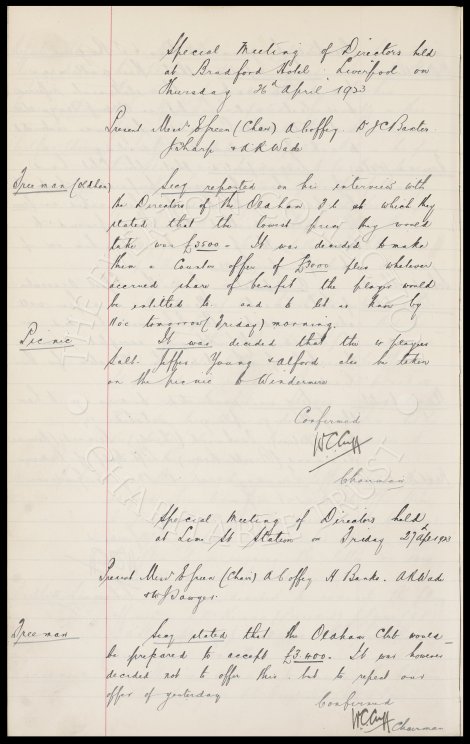 Special Meeting of Directors held
at Bradford Hotel. Liverpool on
Thursday 26th April 1923
Present Messrs E Green (Chair) A Coffey. Dr J C Baxter.
J Sharp & A R Wade
Freeman (Oldham) Secy reported on his interview with
the Directors of the Oldham F C at which they
stated that the lowest price they would
take was £3500 - It was decided to make
them a counter offer of £3000 plus whatever
accrued share of benefit the player would
be entitled to. and to let us know by
noon tomorrow (Friday) morning.
Picnic It was decided that the players
Salt. Jeffs Young & Alford also be taken
on the picnic to Windermere
Confirmed
W C Cuff
Chairman
Special Meeting of Directors held
at Lime St Station on Friday 27 April 1923
Present Messrs E Green (Chair) A Coffey H Banks. A R Wade
& W J Sawyer.
Freeman Secy stated that the Oldham Club would
be prepared to accept £3.400. It was however
decided not to offer this. but to repeat our
offer of yesterday
Confirmed
W C Cuff
Chairman